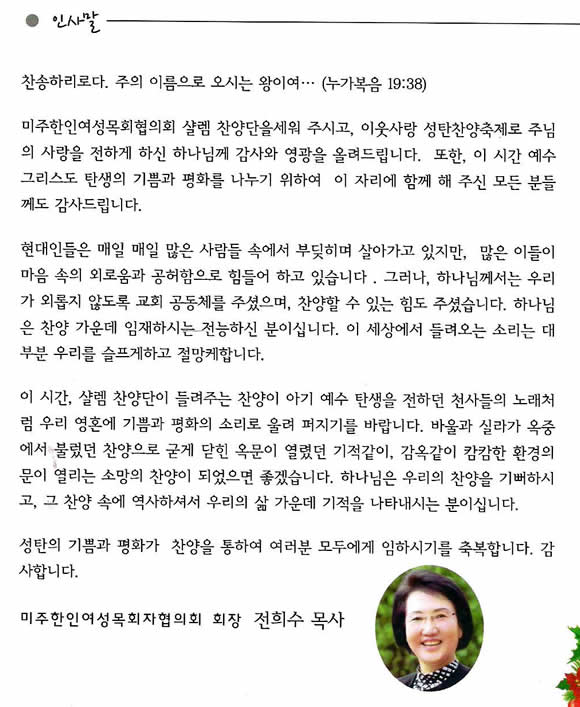 인사말
찬송하리로다. 주의 이름으로 오시는 왕이여… (누가복음 19:38)
미주한인여성목회협의회 샬렘 찬양단을세워 주시고, 이웃사랑 성탄찬양축제로 주님
의 사랑을 전하게 하신 하나님께 감사와 영광을 올려드립니다. 또한, 이 시간 예수
그리스도 탄생의 기쁨과 평화를 나누기 위하여 이 자리에 함께 해 주신 모든 분들
께도 감사드립니다.
현대인들은 매일 매일 많은 사람들 속에서 부딪히며 살아가고 있지만, 많은 이들이
마음 속의 외로움과 공허함으로 힘들어 하고 있습니다 . 그러나, 하나님께서는 우리
가 외롭지 않도록 교회 공동체를 주셨으며, 찬양할 수 있는 힘도 주셨습니다. 하나님
은 찬양 가운데 임재하시는 전능하신 분이십니다. 이 세상에서 들려오는 소리는 대
부분 우리를 슬프게하고 절망케합니다.
이 시간, 샬렘 찬양단이 들려주는 찬양이 아기 예수 탄생을 전하던 천사들의 노래처
럼 우리 영혼에 기쁨과 평화의 소리로 울려 퍼지기를 바랍니다. 바울과 실라가 옥중
에서 불렀던 찬양으로 굳게 닫힌 옥문이 열렸던 기적같이, 감옥같이 캄캄한 환경의
문이 열리는 소망의 찬양이 되었으면 좋겠습니다. 하나님은 우리의 찬양을 기뻐하시
고, 그 찬양 속에 역사하셔서 우리의 삶 가운데 기적을 나타내시는 분이십니다.
성탄의 기쁨과 평화가 찬양을 통하여 여러분 모두에게 임하시기를 축복합니다. 감
사합니다.
미주한인여성목회자협의회 회장 전희수 목사